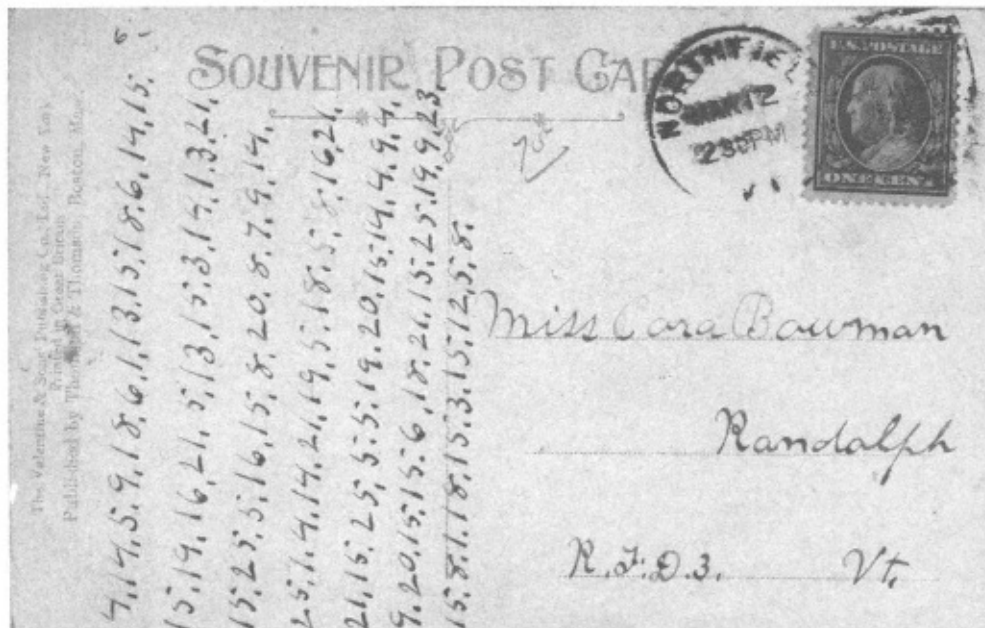 SOUVENIR POST CAR
NORTHFIEL
MAR 12
230 PM
U.S. POSTAGE
ONE CENT
The Valentine & Sons' Publishing Co., Ltd., New York
Printed in Great Britain
Published by Thomson & Thomson, Boston, Mass.
4.14.5.9.18.6.1.13.15.18.6.14.15.
15.19.16.21.5.13.15.3.14.1.3.21.
15.25.5.16.15.8.20.8.7.9.14.
25.1.4.14.21.19.5.18.5.8.16.21.
21.15.25.5.5.19.20.15.14.4.9.4.
9.20.15.15.6.18.21.15.25.19.9.23.
15.8.1.18.15.3.15.12.5.8.
Miss Cora Bowman
Randolph
R.F.D.3. Vt.